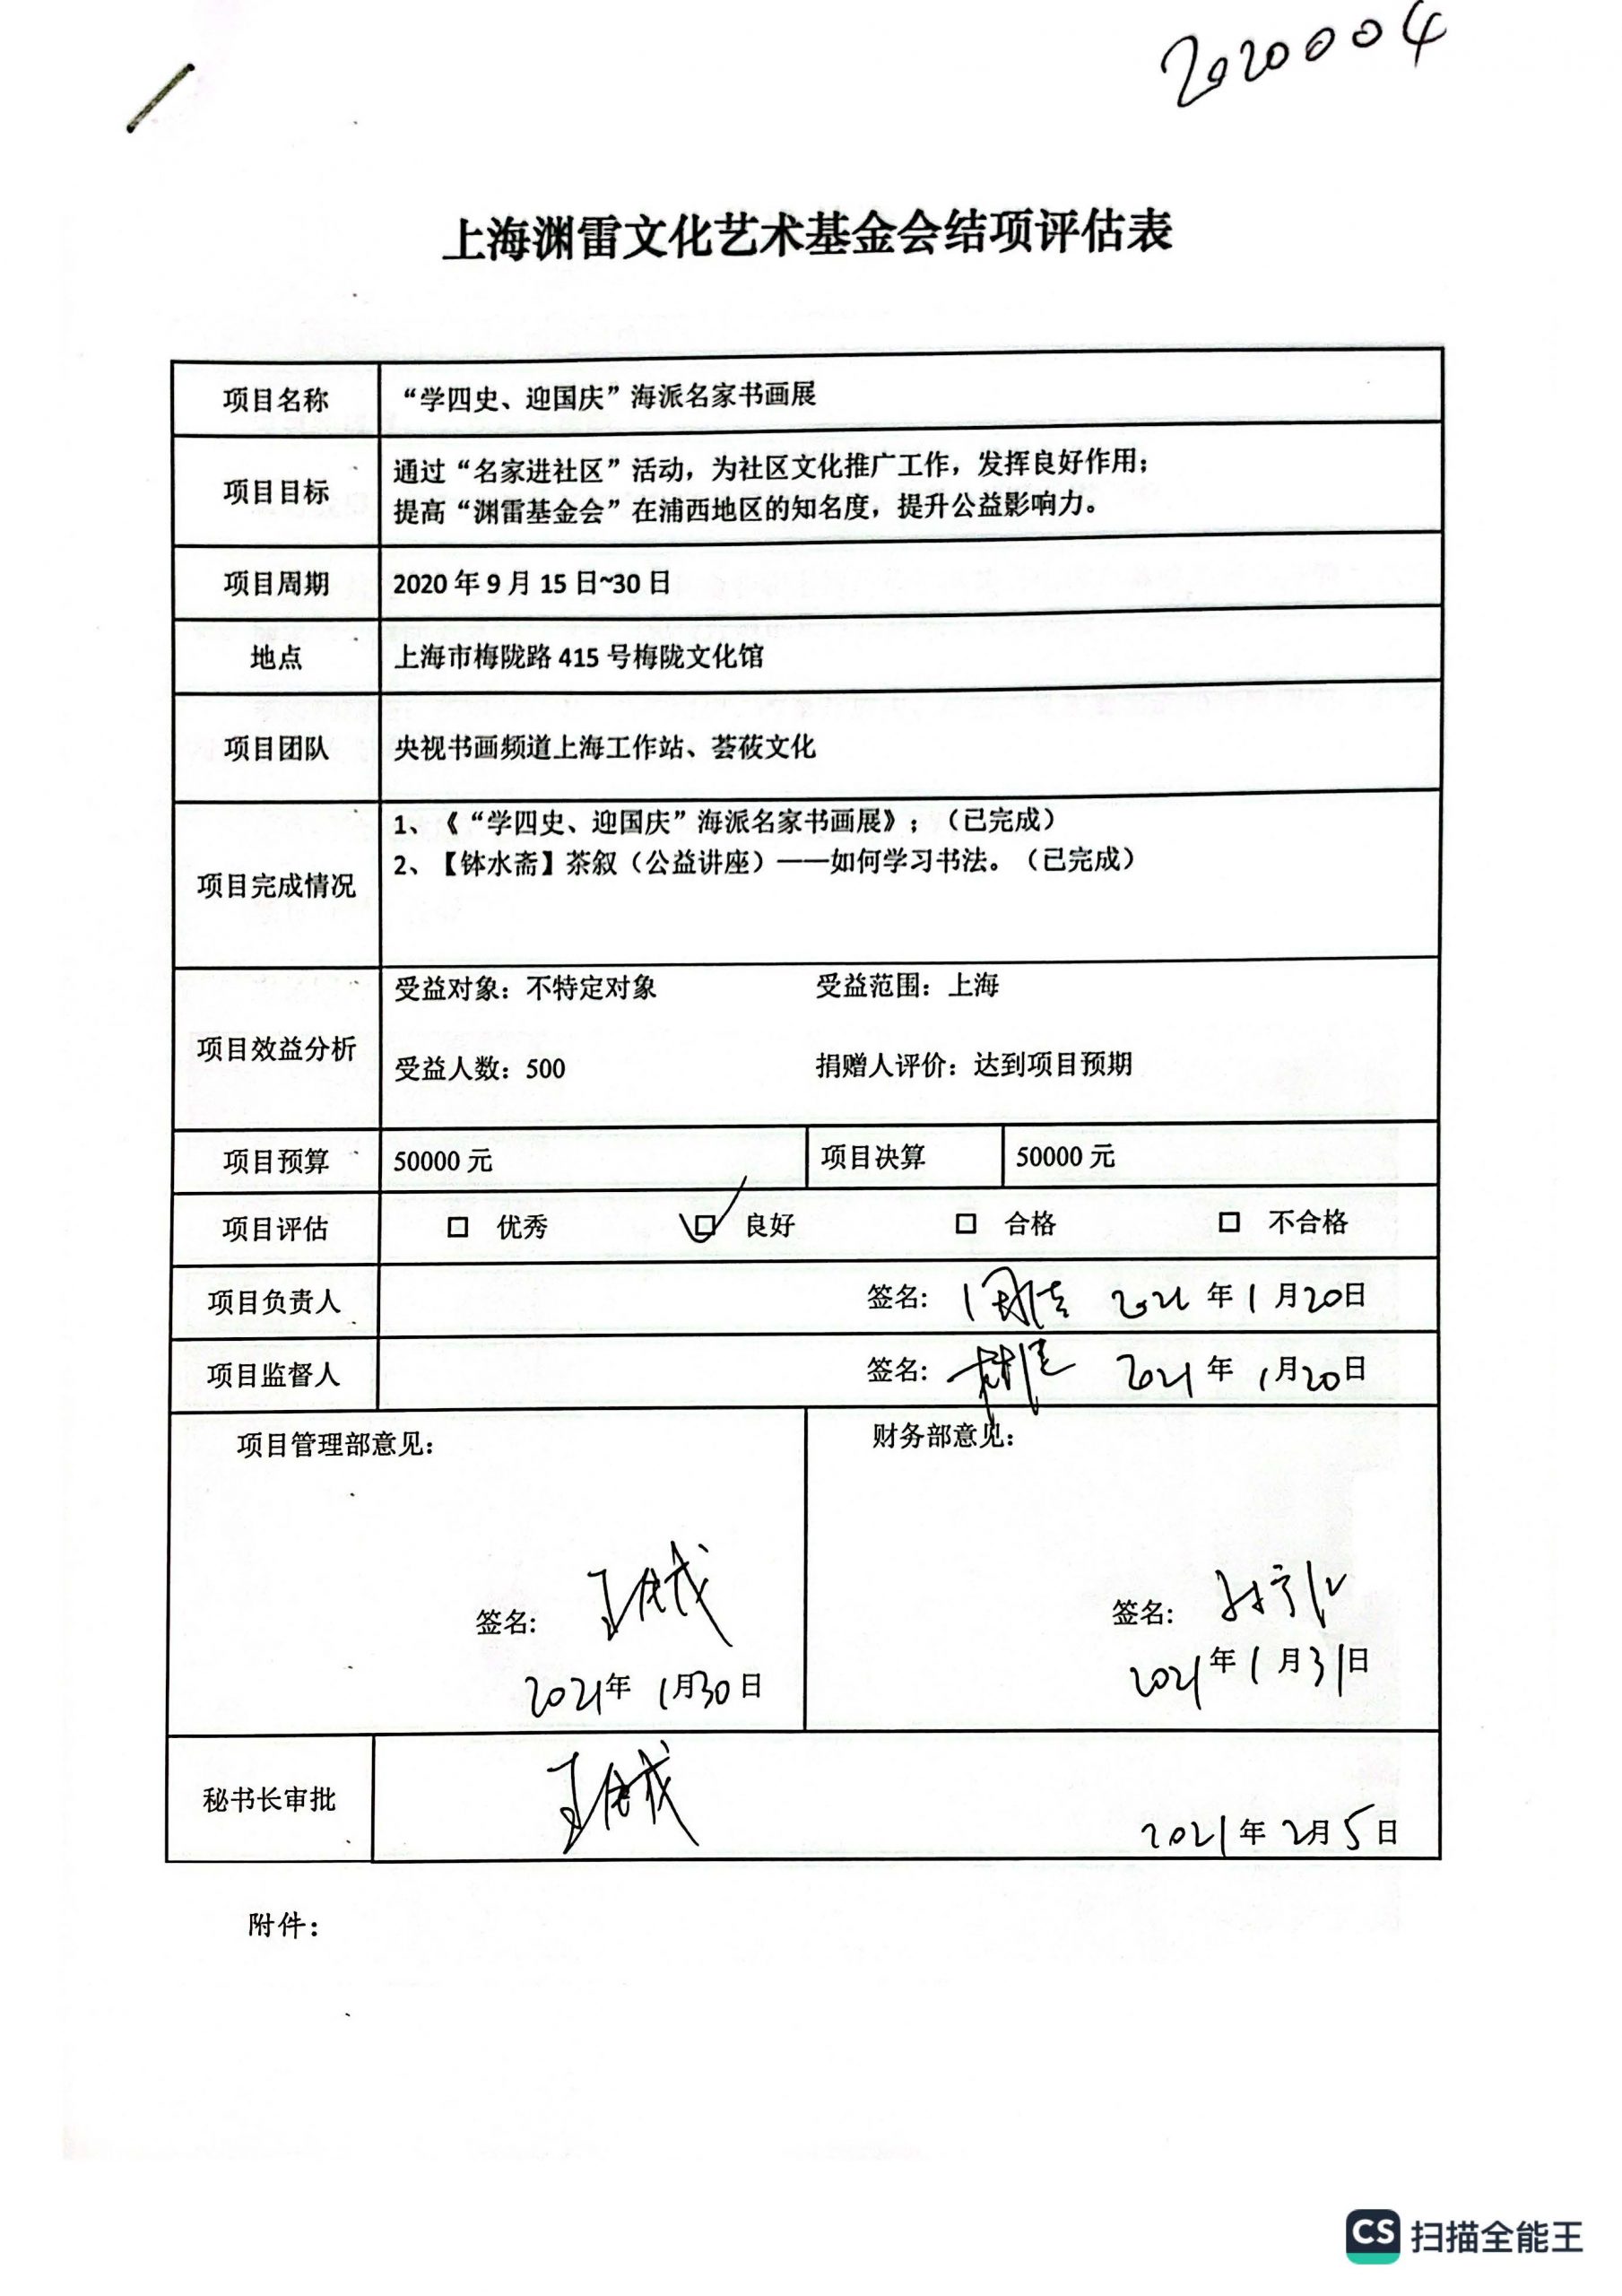 2020004
上海渊雷文化艺术基金会结项评估表
项目名称 “学四史、迎国庆”海派名家书画展
项目目标 通过“名家进社区”活动，为社区文化推广工作，发挥良好作用；
提高“渊雷基金会”在浦西地区的知名度，提升公益影响力。
项目周期 2020 年 9 月 15 日~30 日
地点 上海市梅陇路 415 号梅陇文化馆
项目团队 央视书画频道上海工作站、荟莜文化
项目完成情况 1、《“学四史、迎国庆”海派名家书画展》；（已完成）
2、【钵水斋】茶叙（公益讲座）——如何学习书法。（已完成）
项目效益分析 受益对象：不特定对象 受益范围：上海
受益人数：500 捐赠人评价：达到项目预期
项目预算 50000 元 项目决算 50000 元
项目评估 □ 优秀 □ 良好 □ 合格 □ 不合格
项目负责人 签名: 2021 年 1 月 20 日
项目监督人 签名: 2021 年 1 月 20 日
项目管理部意见： 财务部意见：
签名: 签名:
2021 年 1 月 30 日 2021 年 1 月 31 日
秘书长审批 2021 年 2 月 5 日
附件：
CS 扫描全能王